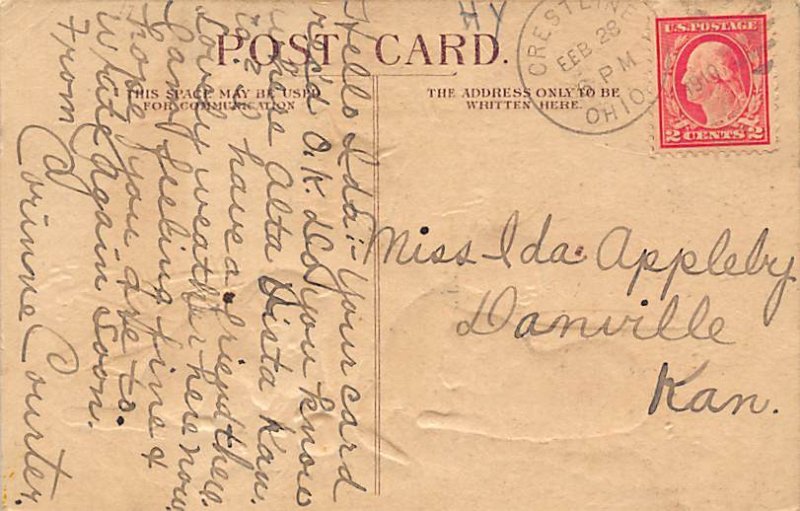 POST CARD.
THIS SPACE MAY BE USED
FOR COMMUNICATION
THE ADDRESS ONLY TO BE
WRITTEN HERE.
CRESTLINE
FEB 28
PM
1910
OHIO
U.S. POSTAGE
2 CENTS 2
Hello Ida:- Your card
rec'd O.K. Do you know
where Alta Vista Kan.
is. I have a friend there.
Lovely weather here now.
I am feeling fine &
hope you are to.
Write again soon.
From Corinne Courter.
Miss Ida Appleby
Danville
Kan.